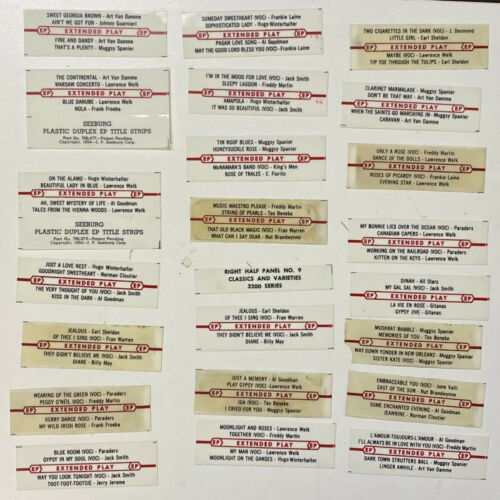 SWEET GEORGIA BROWN - Art Van Damme
AIN'T WE GOT FUN - Johnny Guarnieri
EP EXTENDED PLAY EP
FINE AND DANDY - Art Van Damme
THAT'S A PLENTY - Muggsy Spanier
THE CONTINENTAL - Art Van Damme
WARSAW CONCERTO - Lawrence Welk
EP EXTENDED PLAY EP
BLUE DANUBE - Lawrence Welk
NOLA - Frank Froeba
SEEBURG
PLASTIC DUPLEX EP TITLE STRIPS
Part No. Patent Pending
Copyright, 1954 - J. P. Seeburg Corp.
ON THE ALAMO - Hugo Winterhalter
BEAUTIFUL LADY IN BLUE - Lawrence Welk
EP EXTENDED PLAY EP
AH, SWEET MYSTERY OF LIFE - Al Goodman
TALES FROM THE VIENNA WOODS - Lawrence Welk
SEEBURG
PLASTIC DUPLEX EP TITLE STRIPS
Part No. Patent Pending
Copyright, 1954 - J. P. Seeburg Corp.
JUST A LOVE NEST - Hugo Winterhalter
GOODNIGHT SWEETHEART - Norman Cloutier
EP EXTENDED PLAY EP
THE VERY THOUGHT OF YOU (VOC) - Jack Smith
KISS IN THE DARK - Al Goodman
JEALOUS - Earl Sheldon
OF THEE I SING (VOC) - Fran Warren
EP EXTENDED PLAY EP
THEY DIDN'T BELIEVE ME (VOC) - Jack Smith
DIANE - Billy May
WEARING OF THE GREEN (VOC) - Paraders
PEGGY O'NEIL (VOC) - Freddy Martin
EP EXTENDED PLAY EP
KERRY DANCE (VOC) - Paraders
MY WILD IRISH ROSE - Frank Froeba
BLUE ROOM (VOC) - Paraders
GYPSY IN MY SOUL (VOC) - Jack Smith
EP EXTENDED PLAY EP
WAY YOU LOOK TONIGHT (VOC) - Jack Smith
TOOT-TOOT-TOOTSIE - Jerry Jerome
SOMEDAY SWEETHEART (VOC) - Frankie Laine
SOPHISTICATED LADY - Hugo Winterhalter
EP EXTENDED PLAY EP
PAGAN LOVE SONG - Al Goodman
MAY THE GOOD LORD BLESS YOU (VOC) - Frankie Laine
I'M IN THE MOOD FOR LOVE (VOC) - Jack Smith
SLEEPY LAGOON - Freddy Martin
EP EXTENDED PLAY EP
AMAPOLA - Hugo Winterhalter
IT WAS SO BEAUTIFUL (VOC) - Jack Smith
TIN ROOF BLUES - Muggsy Spanier
HONEYSUCKLE ROSE - Muggsy Spanier
EP EXTENDED PLAY EP
McNAMARA'S BAND (VOC) - King's Men
ROSE OF TRALEE - E. Fiorito
MUSIC MAESTRO PLEASE - Freddy Martin
STRING OF PEARLS - Tex Beneke
EP EXTENDED PLAY EP
THAT OLD BLACK MAGIC (VOC) - Fran Warren
WHAT CAN I SAY DEAR - Nat Brandwynne
RIGHT HALF PANEL NO. 9
CLASSICS AND VARIETIES
3200 SERIES
JEALOUS - Earl Sheldon
OF THEE I SING (VOC) - Fran Warren
EP EXTENDED PLAY EP
THEY DIDN'T BELIEVE ME (VOC) - Jack Smith
DIANE - Billy May
JUST A MEMORY - Al Goodman
PLAY GYPSY (VOC) - Lawrence Welk
EP EXTENDED PLAY EP
IDA (VOC) - Tex Beneke
I CRIED FOR YOU - Muggsy Spanier
MOONLIGHT AND ROSES - Lawrence Welk
TOGETHER (VOC) - Freddy Martin
EP EXTENDED PLAY EP
MY MAN (VOC) - Lawrence Welk
MOONLIGHT ON THE GANGES - Hugo Winterhalter
TWO CIGARETTES IN THE DARK (VOC) - J. Desmond
LITTLE GIRL - Earl Sheldon
EP EXTENDED PLAY EP
MAYBE (VOC) - Lawrence Welk
TIP TOE THROUGH THE TULIPS - Earl Sheldon
CLARINET MARMALADE - Muggsy Spanier
DON'T BE THAT WAY - Art Van Damme
EP EXTENDED PLAY EP
WHEN THE SAINTS GO MARCHING IN - Muggsy Spanier
CARAVAN - Art Van Damme
ONLY A ROSE (VOC) - Freddy Martin
DANCE OF THE DOLLS - Lawrence Welk
EP EXTENDED PLAY EP
ROSES OF PICARDY (VOC) - Frankie Laine
EVENING STAR - Lawrence Welk
MY BONNIE LIES OVER THE OCEAN (VOC) - Paraders
CANADIAN CAPERS - Lawrence Welk
EP EXTENDED PLAY EP
WORKING ON THE RAILROAD (VOC) - Paraders
KITTEN ON THE KEYS - Lawrence Welk
DINAH - All Stars
MY GAL SAL (VOC) - Jack Smith
EP EXTENDED PLAY EP
LA VIE EN ROSE - Gitanas
GYPSY - Gitanas
MUSKRAT RAMBLE - Muggsy Spanier
MEMORIES OF YOU - Tex Beneke
EP EXTENDED PLAY EP
WAY DOWN YONDER IN NEW ORLEANS - Muggsy Spanier
SISTER KATE (VOC) - Muggsy Spanier
EMBRACEABLE YOU (VOC) - June Valli
EAST OF THE SUN - Nat Brandwynne
EP EXTENDED PLAY EP
SOME ENCHANTED EVENING - Al Goodman
JEANNINE - Norman Cloutier
L'AMOUR-TOUJOURS-L'AMOUR - Al Goodman
I'LL ALWAYS BE IN LOVE WITH YOU (VOC) - Freddy Martin
EP EXTENDED PLAY EP
DARK TOWN STRUTTERS BALL - Muggsy Spanier
LINGER AWHILE - Art Van Damme